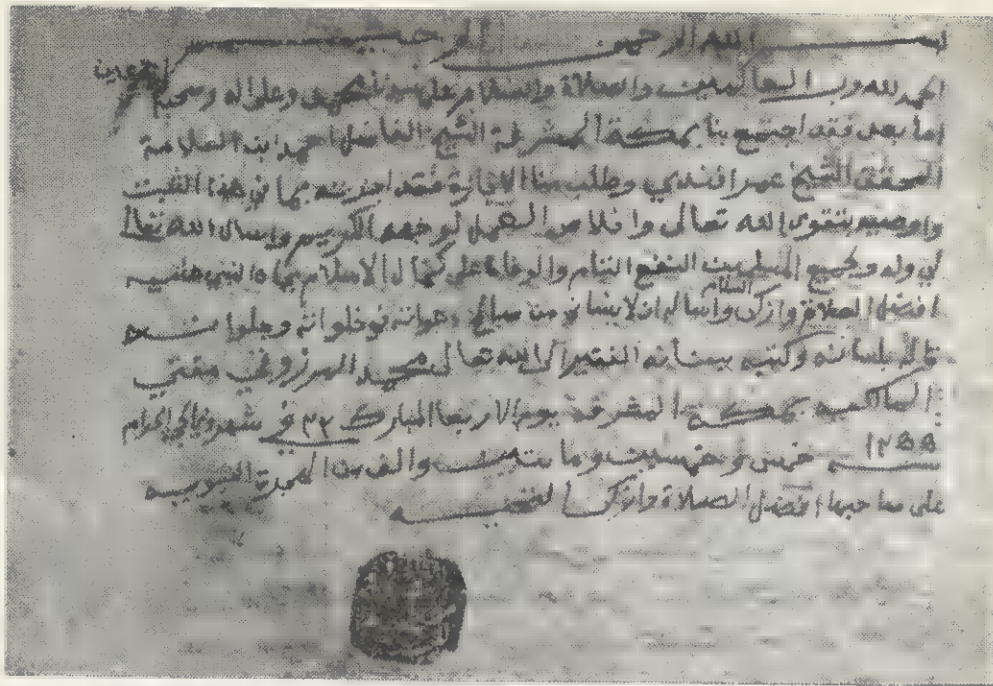 بسم الله الرحمن الرحيم
الحمد لله رب العالمين والصلاة والسلام على سيدنا محمد وعلى اله وصحبه اجمعين
اما بعد فقد اجتمع بنا بمكة المشرفة الشيخ الفاضل احمد ابن العلامة
المحقق الشيخ عمر افندي وطلب منا الاجازة فقد اجزته بما في هذا الثبت
واوصيه بتقوى الله تعالى واخلاص العمل لوجهه الكريم واسال الله تعالى
لي وله ولجميع المسلمين النفع التام والوفاة على كمال الاسلام بجاه النبي عليه
افضل الصلاة وازكى السلام واساله ان لا ينساني من صالح دعواته في خلواته وجلواته
قاله بلسانه وكتبه ببنانه الفقير الى الله تعالى محمد المرزوقي مفتي
المالكيه بمكة المشرفة يوم الاربعا المبارك ٢٣ في شهر ذي الحرام
١٢٥٥
سنه خمس وخمسين ومائتين والف من الهجرة النبويه
على صاحبها افضل الصلاة وازكى التحيه